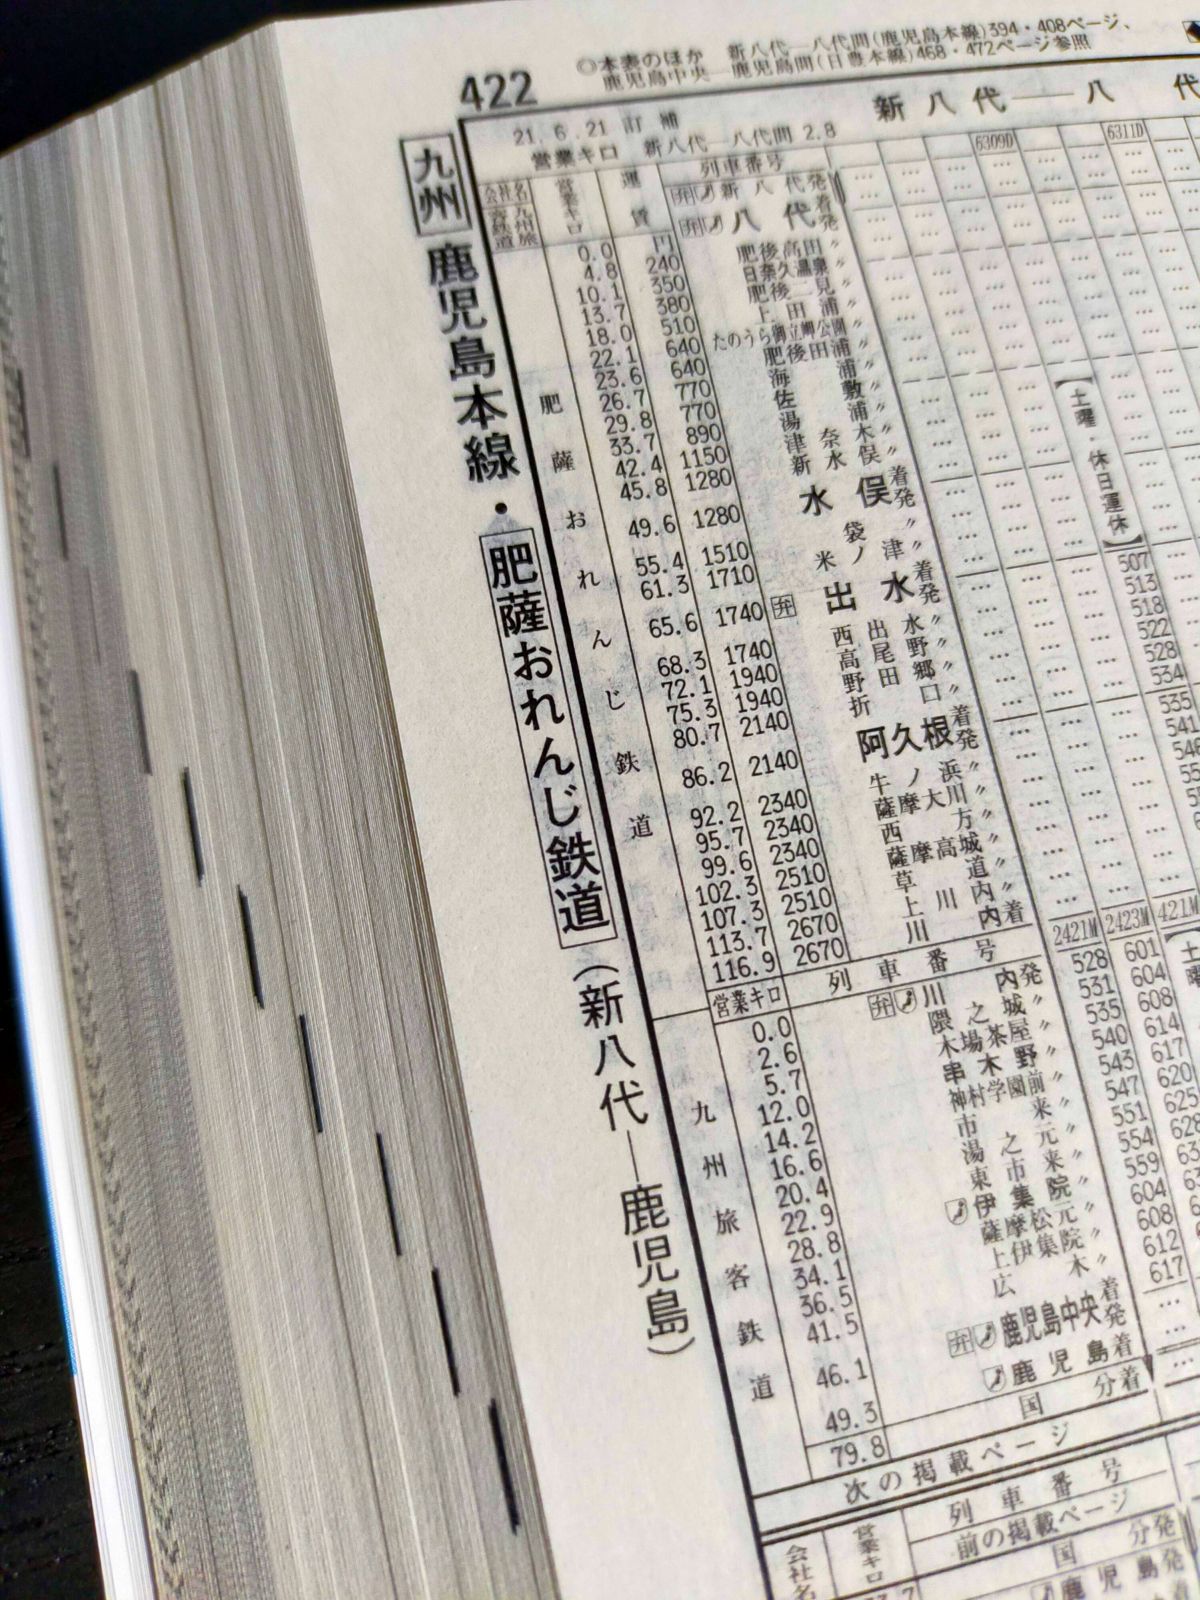 ◎本表のほか 新八代―八代間(鹿児島本線)394・408ページ、
鹿児島中央―鹿児島間(日豊本線)468・472ページ参照
422
九州
鹿児島本線・肥薩おれんじ鉄道(新八代―鹿児島)
新八代――八代
21.6.21 訂補
営業キロ 新八代―八代間 2.8
会社名 営業キロ 運賃 列車番号 6309D 6311D
九州旅客鉄道
弁 新八代発
弁 八代着発
肥薩おれんじ鉄道
0.0 円 肥後高田 〃
4.8 240 日奈久温泉 〃
10.1 350 肥後二見 〃
13.7 380 上田浦 〃
18.0 510 たのうら御立岬公園 〃
22.1 640 肥後田浦 〃
23.6 640 海浦 〃
26.7 770 佐敷 〃
29.8 770 湯浦 〃
33.7 890 津奈木 〃
42.4 1150 新水俣 〃
45.8 1280
49.6 1280 水俣着発
袋 〃
55.4 1510 米ノ津 〃
61.3 1710
65.6 1740 弁 出水着発
68.3 1740 西出水 〃
72.1 1940 高尾野 〃
75.3 1940 野田郷 〃
80.7 2140 折口 〃
86.2 2140 阿久根着発
92.2 2340 牛ノ浜 〃
95.7 2340 薩摩大川 〃
99.6 2340 西方 〃
102.3 2510 薩摩高城 〃
107.3 2510 草道 〃
113.7 2670 上川内 〃
116.9 2670 川内着
【土曜・休日運休】
507
513
518
522
528
534
535
541
546
営業キロ 列車番号 2421M 2423M 421M
九州旅客鉄道
0.0 弁 川内発 528 601
2.6 隈之城 〃 531 604
5.7 木場茶屋 〃 535 608
12.0 串木野 〃 540 614
14.2 神村学園前 〃 543 617
16.6 市来 〃 547 620
20.4 湯之元 〃 551 625
22.9 東市来 〃 554 628
28.8 伊集院 〃 559
34.1 薩摩松元 〃 604
36.5 上伊集院 〃 608
41.5 広木 〃 612
46.1 弁 鹿児島中央着発 617
49.3 鹿児島着
79.8 国分着
次の掲載ページ
会社名 営業キロ 列車番号
前の掲載ページ
国分発
鹿児島着